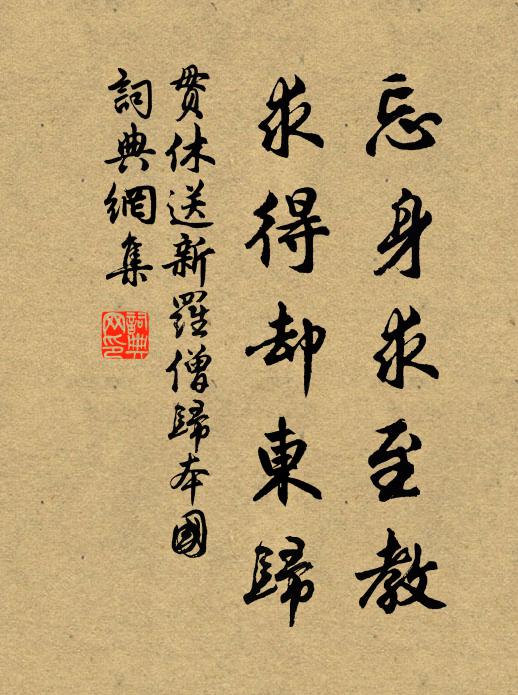 忘身求至教
求得却東歸
貫休送新羅僧歸本國
詞典網集
詞典網印